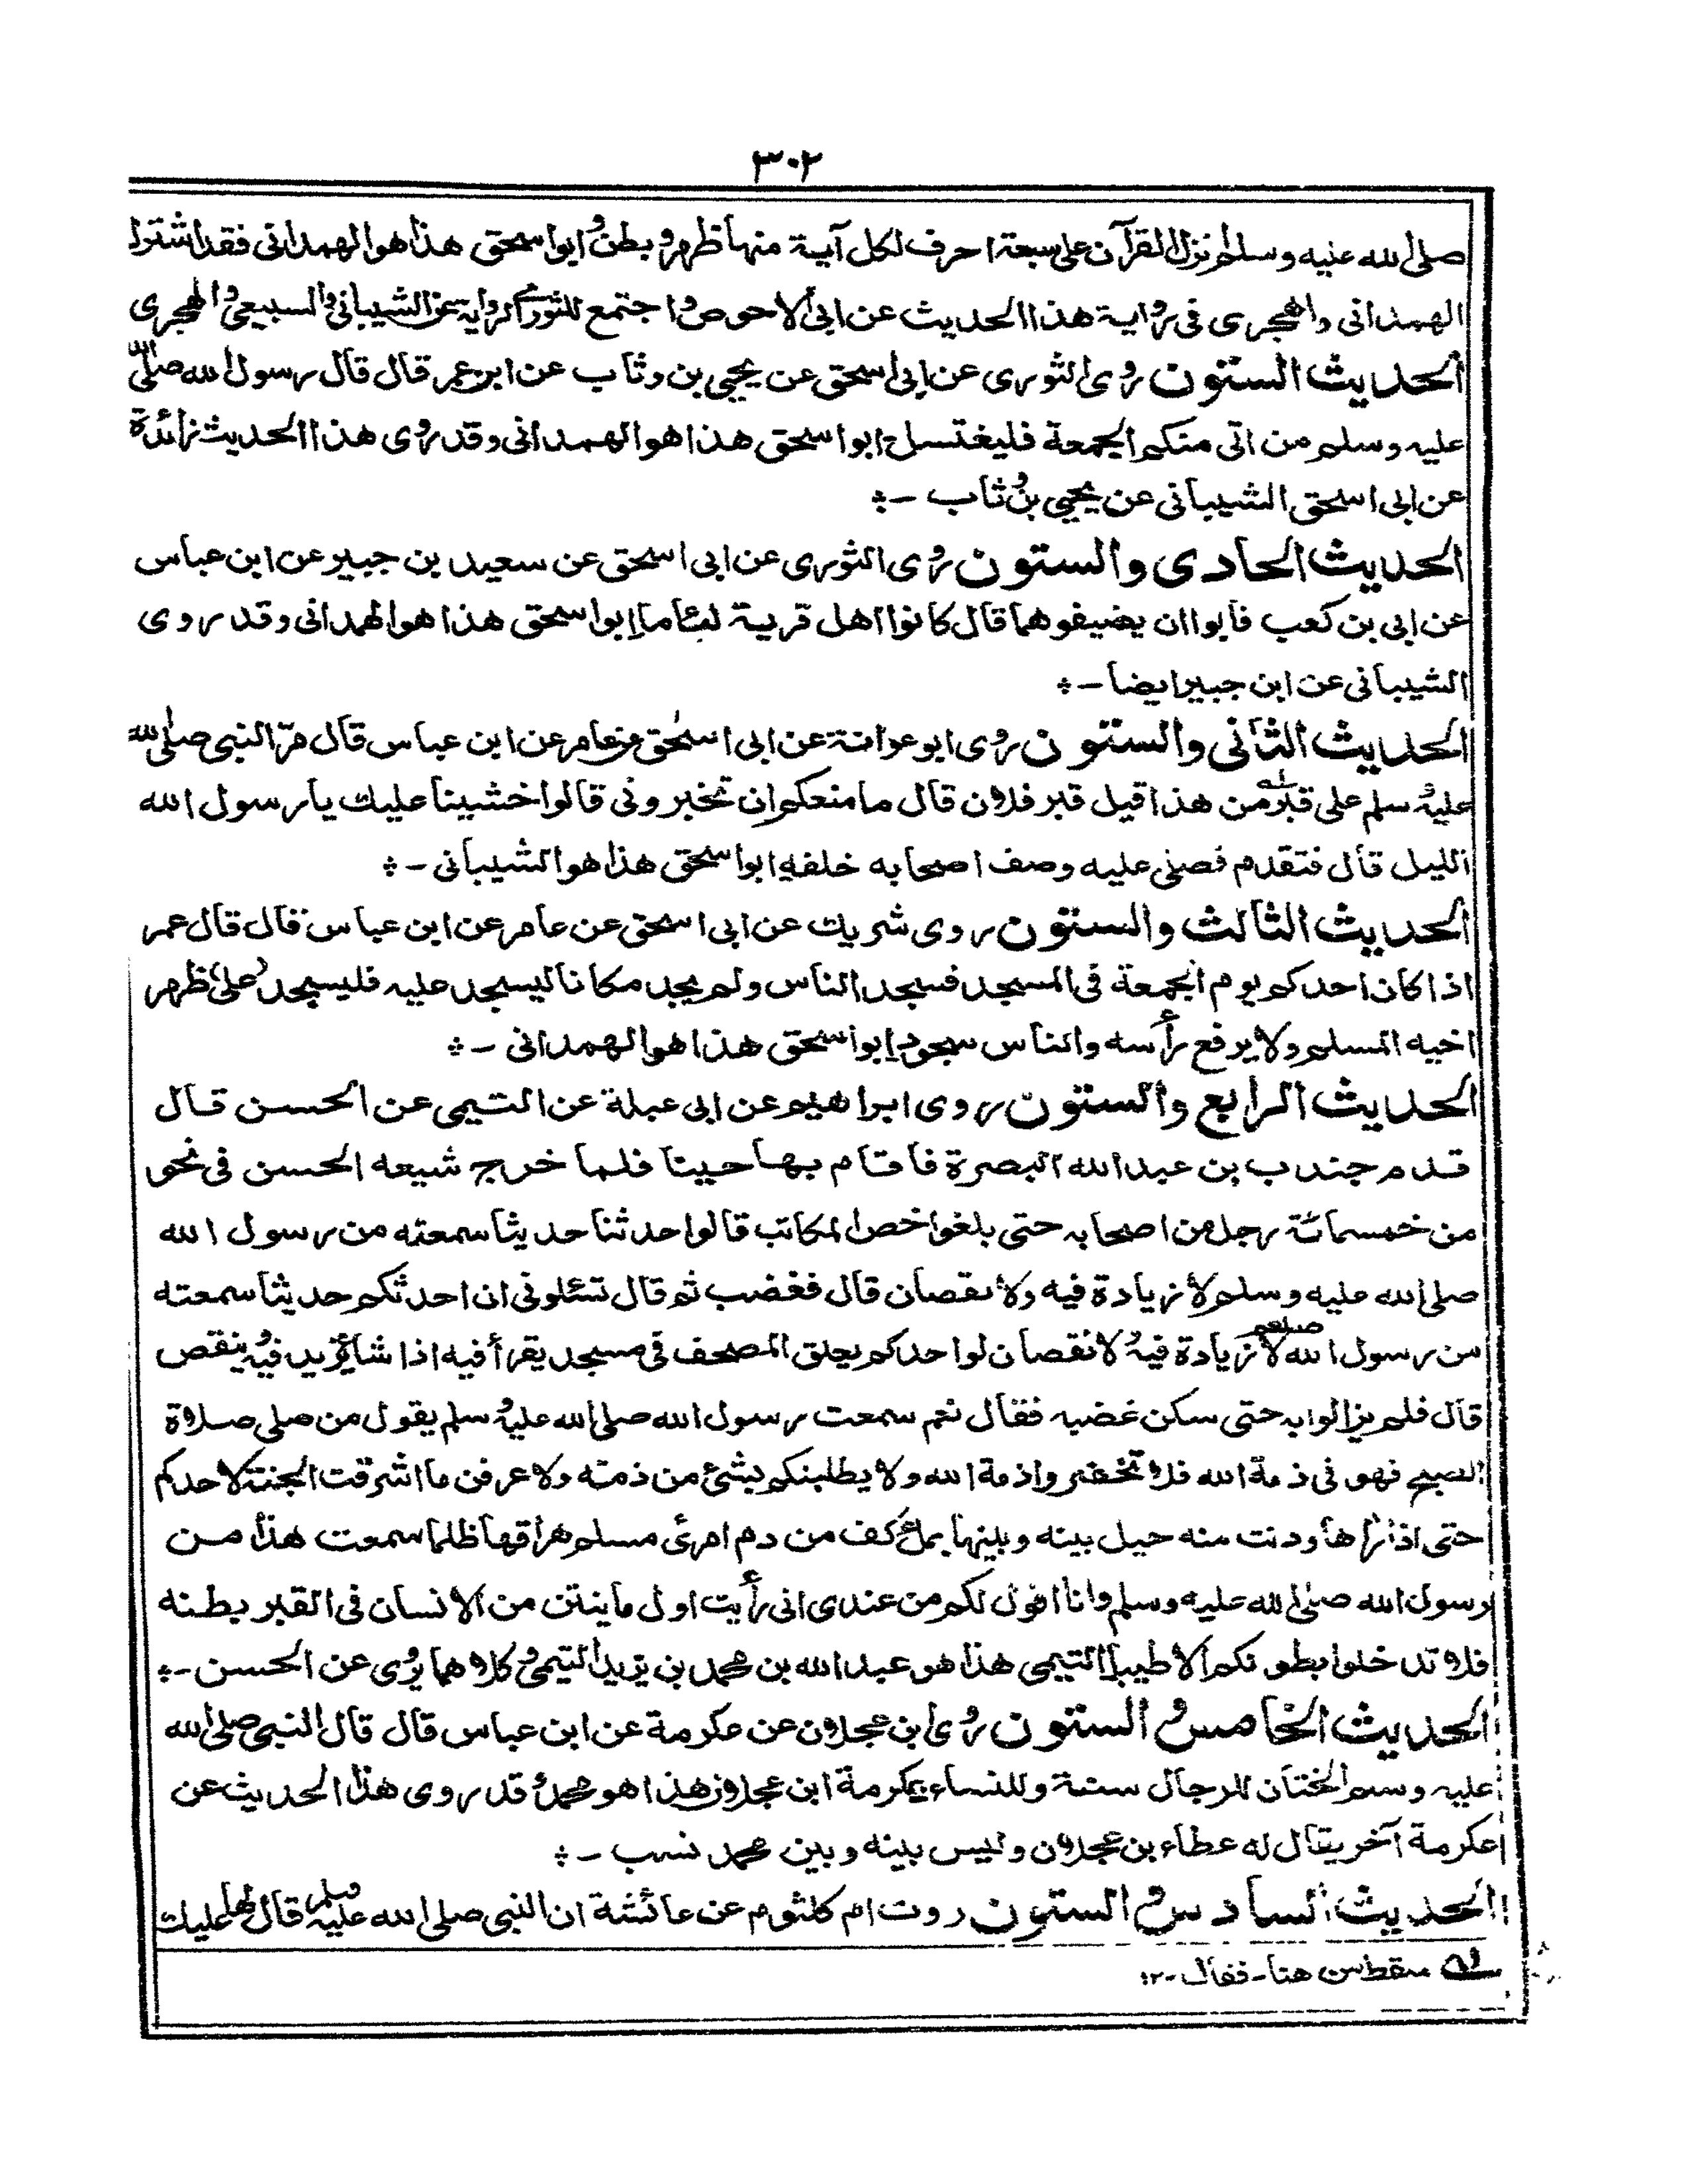 ٣٠٢
صلى الله عليه وسلم نزل القرآن على سبعة احرف لكل آية منها ظهر و بطن و ابو اسحق هذا هو الهمدانى فقد اشترك
الهمدانى والهجرى فى رواية هذا الحديث عن ابى الاحوص و اجتمع للثورى الرواية عن الشيبانى والسبيعى والهجرى
الحديث الستون روى الثورى عن ابى اسحق عن يحيى بن وثاب عن ابن عمر قال قال رسول الله صلى الله
عليه وسلم من اتى منكم الجمعة فليغتسل ابو اسحق هذا هو الهمدانى وقد روى هذا الحديث زائدة
عن ابى اسحق الشيبانى عن يحيى بن وثاب -
الحديث الحادى والستون روى الثورى عن ابى اسحق عن سعيد بن جبير عن ابن عباس
عن ابى بن كعب فابوا ان يضيفوهما قال كانوا اهل قرية لئاما ابو اسحق هذا هو الهمدانى وقد روى
الشيبانى عن ابن جبير ايضا -
الحديث الثانى والستون روى ابو عوانة عن ابى اسحق عن عامر عن ابن عباس قال مرّ النبى صلى الله
عليه وسلم على قبر من هذا قيل قبر فلان قال ما منعكم ان تخبرونى قالوا خشينا عليك يا رسول الله
الليل قال فتقدم فصلى عليه وصف اصحابه خلفه ابو اسحق هذا هو الشيبانى -
الحديث الثالث والستون روى شريك عن ابى اسحق عن عامر عن ابن عباس قال قال عمر
اذا كان احدكم يوم الجمعة فى المسجد فسجد الناس ولم يجد مكانا ليسجد عليه فليسجد على ظهر
اخيه المسلم ولا يرفع رأسه والناس سجود ابو اسحق هذا هو الهمدانى -
الحديث الرابع والستون روى ابراهيم عن ابى عبلة عن التيمى عن الحسن قال
قدم جندب بن عبد الله البصرة فاقام بها حينا فلما خرج شيعه الحسن فى نحو
من خمسمائة رجل من اصحابه حتى بلغوا خص المكاتب قالوا حدثنا حديثا سمعته من رسول الله
صلى الله عليه وسلم لا زيادة فيه ولا نقصان قال فغضب ثم قال تسئلونى ان احدثكم حديثا سمعته
من رسول الله صلعم لا زيادة فيه ولا نقصان لو احدكم يعلق المصحف فى مسجد يقرأ فيه اذا شاء يزيد فيه وينقص
قال فلم يزالوا به حتى سكن غضبه فقال نعم سمعت رسول الله صلى الله عليه وسلم يقول من صلى صلاة
الصبح فهو فى ذمة الله فلا تخفروا ذمة الله ولا يطلبنكم بشئ من ذمته ولا عرفن ما اشرقت الجنة لاحدكم
حتى اذا رآها ودنت منه حيل بينه وبينها بملء كف من دم امرئ مسلم هراقها ظلما سمعت هذا من
رسول الله صلى الله عليه وسلم وانا اقول لكم من عندى انى رأيت اول ما ينتن من الانسان فى القبر بطنه
فلا تدخلوا بطونكم الا طيبا التيمى هذا هو عبد الله بن محمد بن يزيد التيمى وكلاهما يروى عن الحسن -
الحديث الخامس والستون روى ابن عجلان عن عكرمة عن ابن عباس قال قال النبى صلى الله
عليه وسلم الختان للرجال سنة وللنساء مكرمة ابن عجلان هذا هو محمد وقد روى هذا الحديث عن
عكرمة آخر يقال له عطاء بن عجلان وليس بينه وبين محمد نسب -
الحديث السادس والستون روت ام كلثوم عن عائشة ان النبى صلى الله عليه وسلم قال لها عليك
سقط من هنا - فقال - ١٢